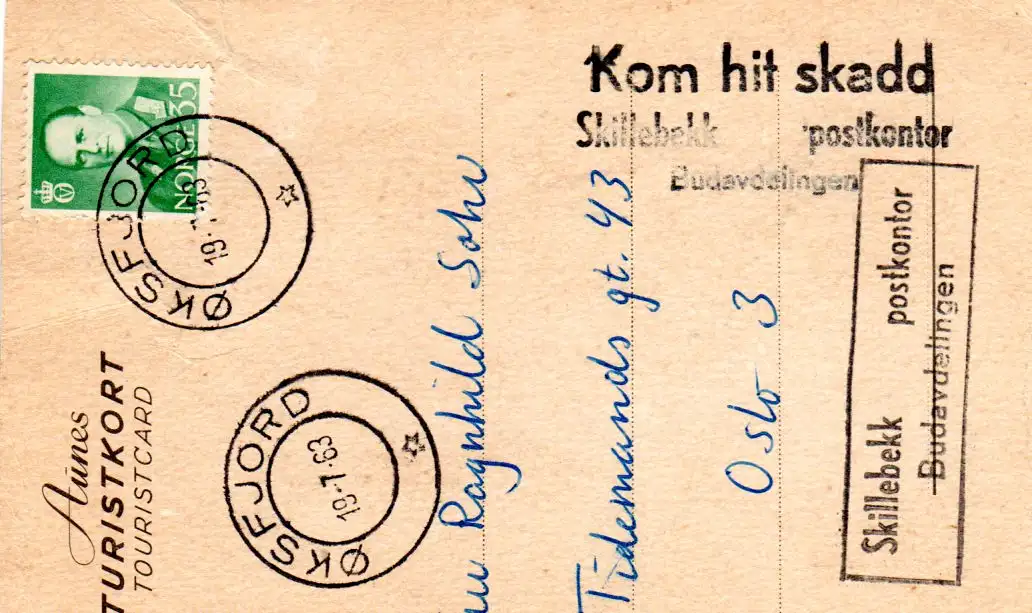 Kom hit skadd
Skillebekk postkontor
Budavdelingen
NORGE 35
ØKSFJORD
19.7.63
ØKSFJORD
19.-7.63
Aunes
TURISTKORT
TOURISTCARD
Ragnhild Sohr
Tidemands gt. 43
Oslo 3
Skillebekk postkontor
Budavdelingen